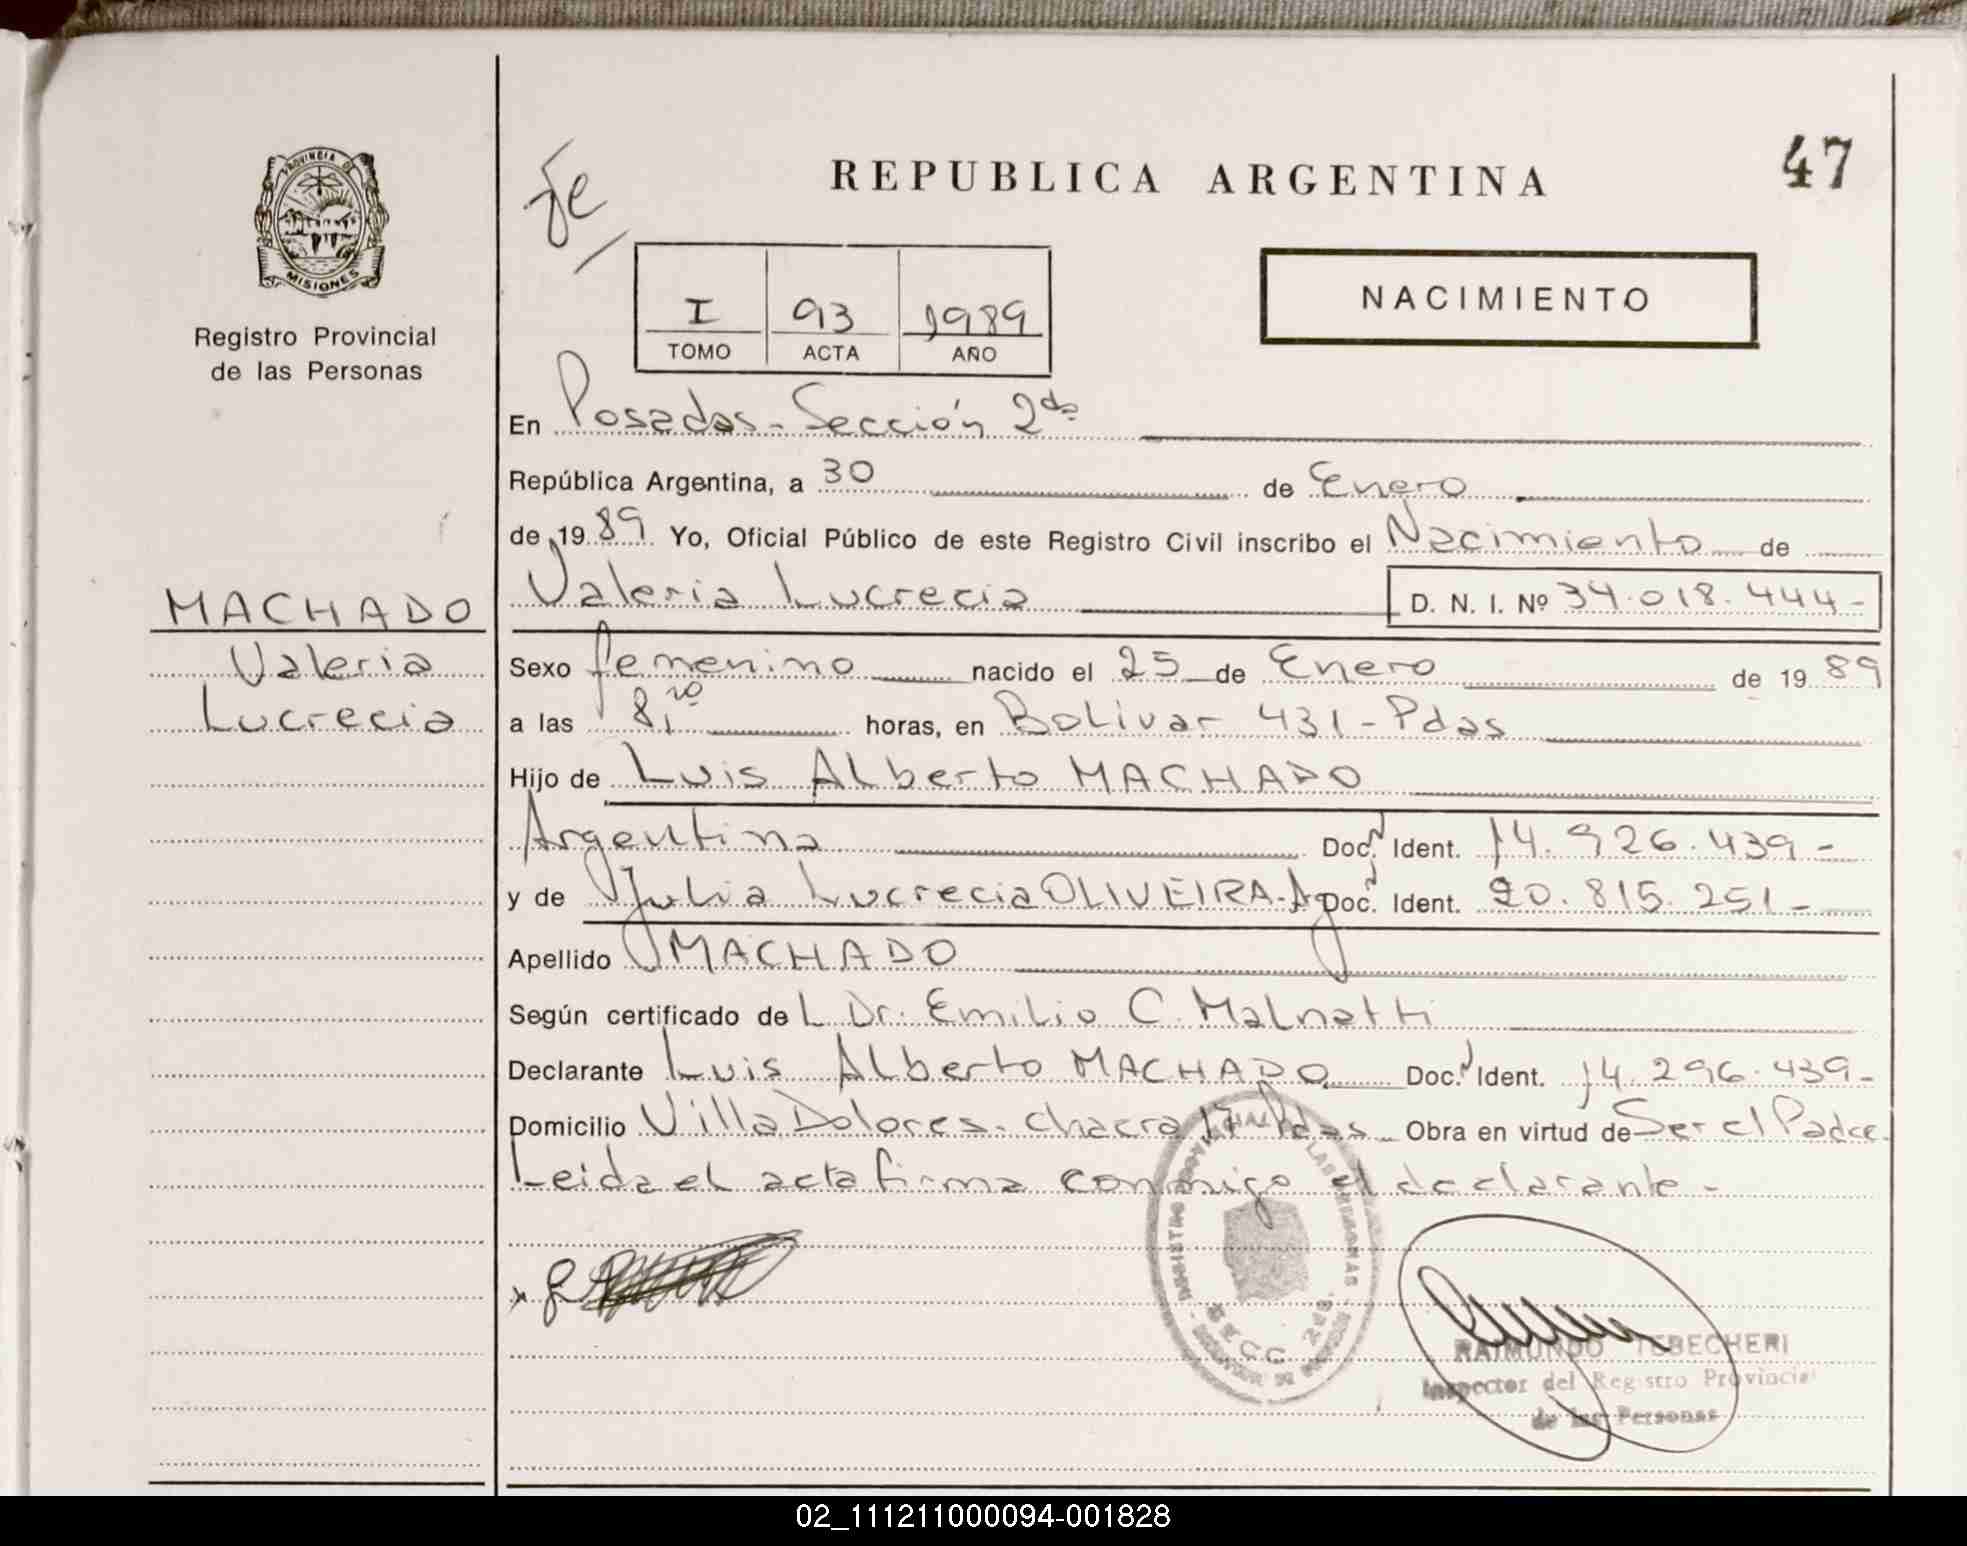 47
REPUBLICA ARGENTINA
PROVINCIA DE
MISIONES
Registro Provincial
de las Personas
I 93 1989
TOMO ACTA AÑO
NACIMIENTO
En Posadas - Sección 2da
República Argentina, a 30 de Enero
de 1989 Yo, Oficial Público de este Registro Civil inscribo el Nacimiento de
MACHADO
Valeria
Lucrecia
Valeria Lucrecia D. N. I. Nº 34.018.444-
Sexo femenino nacido el 25 de Enero de 1989
a las 8,10 horas, en Bolivar 431 - Pdas
Hijo de Luis Alberto MACHADO
Argentina Doc. Ident. 14.926.439-
y de Julia Lucrecia OLIVEIRA - Arg Doc. Ident. 20.815.251-
Apellido MACHADO
Según certificado del Dr. Emilio C. Malnatti
Declarante Luis Alberto MACHADO Doc. Ident. 14.296.439-
Domicilio Villa Dolores - chacra 17 Pdas - Obra en virtud de Ser el Padre.
Leida el acta firma conmigo el declarante -
SECC. 2da.
RAIMUNDO TEBECHERI
Inspector del Registro Provincial
de las Personas
02_111211000094-001828